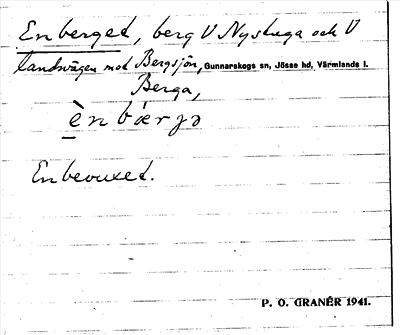 Enberget, berg V Nystuga och V
landvägen mot Bergsjön, Gunnarskogs sn, Jösse hd, Värmlands l.
Berga,
è̱nbærjə
Enbevuxet.
P. O. GRANÉR 1941.